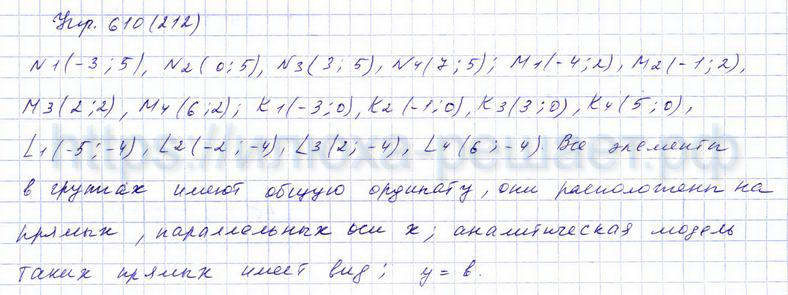 Упр. 610 (212)
N1(-3; 5), N2(0; 5), N3(3; 5), N4(7; 5); M1(-4; 2), M2(-1; 2),
M3(2; 2), M4(6; 2); K1(-3; 0), K2(-1; 0), K3(3; 0), K4(5; 0),
L1(-5; -4), L2(-2; -4), L3(2; -4), L4(6; -4). Все элементы
в группах имеют общую ординату, они расположены на
прямых, параллельных оси x; аналитическая модель
таких прямых имеет вид; y = b.